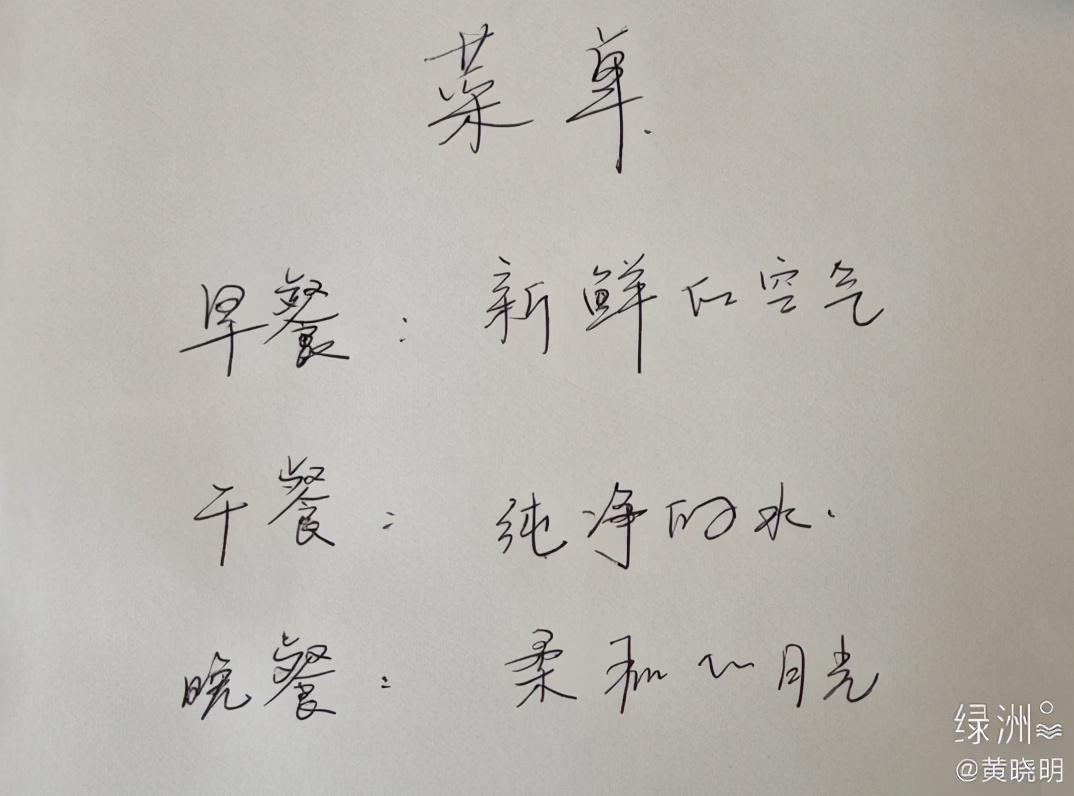 菜单.
早餐：新鲜的空气
午餐：纯净的水.
晚餐：柔和的月光
绿洲
@黄晓明